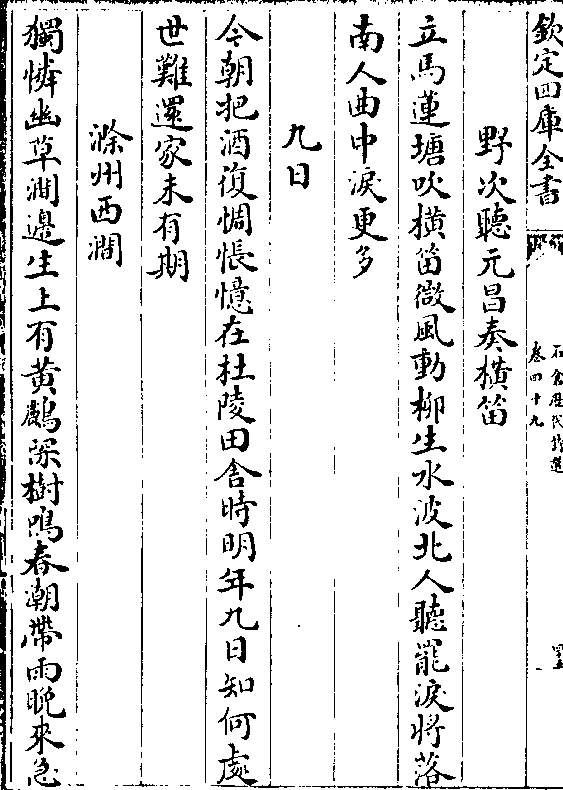 欽定四庫全書
石倉歷代詩選
卷四十九
野次聽元昌奏橫笛
立馬蓮塘吹橫笛微風動柳生水波北人聽罷淚將落
南人曲中淚更多
九日
今朝把酒復惆悵憶在杜陵田舍時明年九日知何處
世難還家未有期
滁州西澗
獨憐幽草澗邊生上有黃鸝深樹鳴春潮帶雨晚來急